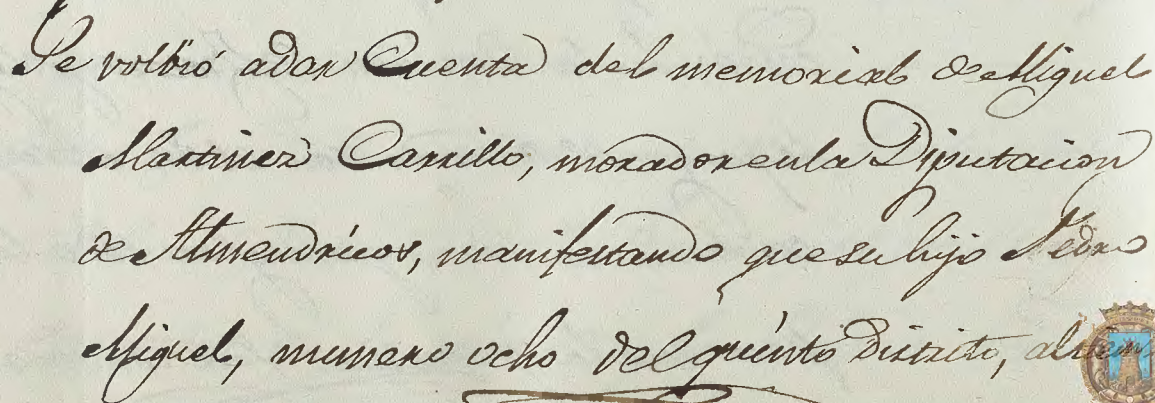 Se volbió a dar Cuenta del memorial de Miguel
Martinez Carrillo, morador en la Diputacion
de Almendricos, manifestando que su hijo Pedro
Miguel, numero ocho del quinto Distrito, al